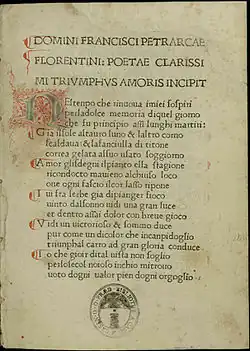 DOMINI FRANCISCI PETRARCAE
FLORENTINI: POETAE CLARISSI
MI TRIVMPHVS AMORIS INCIPIT
NEl tempo che rinnoua imiei sospiri
per la dolce memoria di quel giorno
che fu principio assi lunghi martiri:
Gia il sole al tauro luno & laltro corno
scaldaua: & la fanciulla di titone
correa gelata al suo usato soggiorno
Amor gli sdegni il pianto et la stagione
ricondocto maueino al chiuso loco
oue ogni fascio il cor lasso ripone
Iui fra lerbe gia di pianger fioco
uinto dal sonno uidi una gran luce
et dentro assai dolor con breue gioco
Vidi un uictorioso & sommo duce
pur come un di color che in campidoglio
triumphal carro ad gran gloria conduce
Io che gioir di tal uista non soglio
per lo secol noioso in chio mi trouo
uoto dogni ualor pien dogni orgoglio